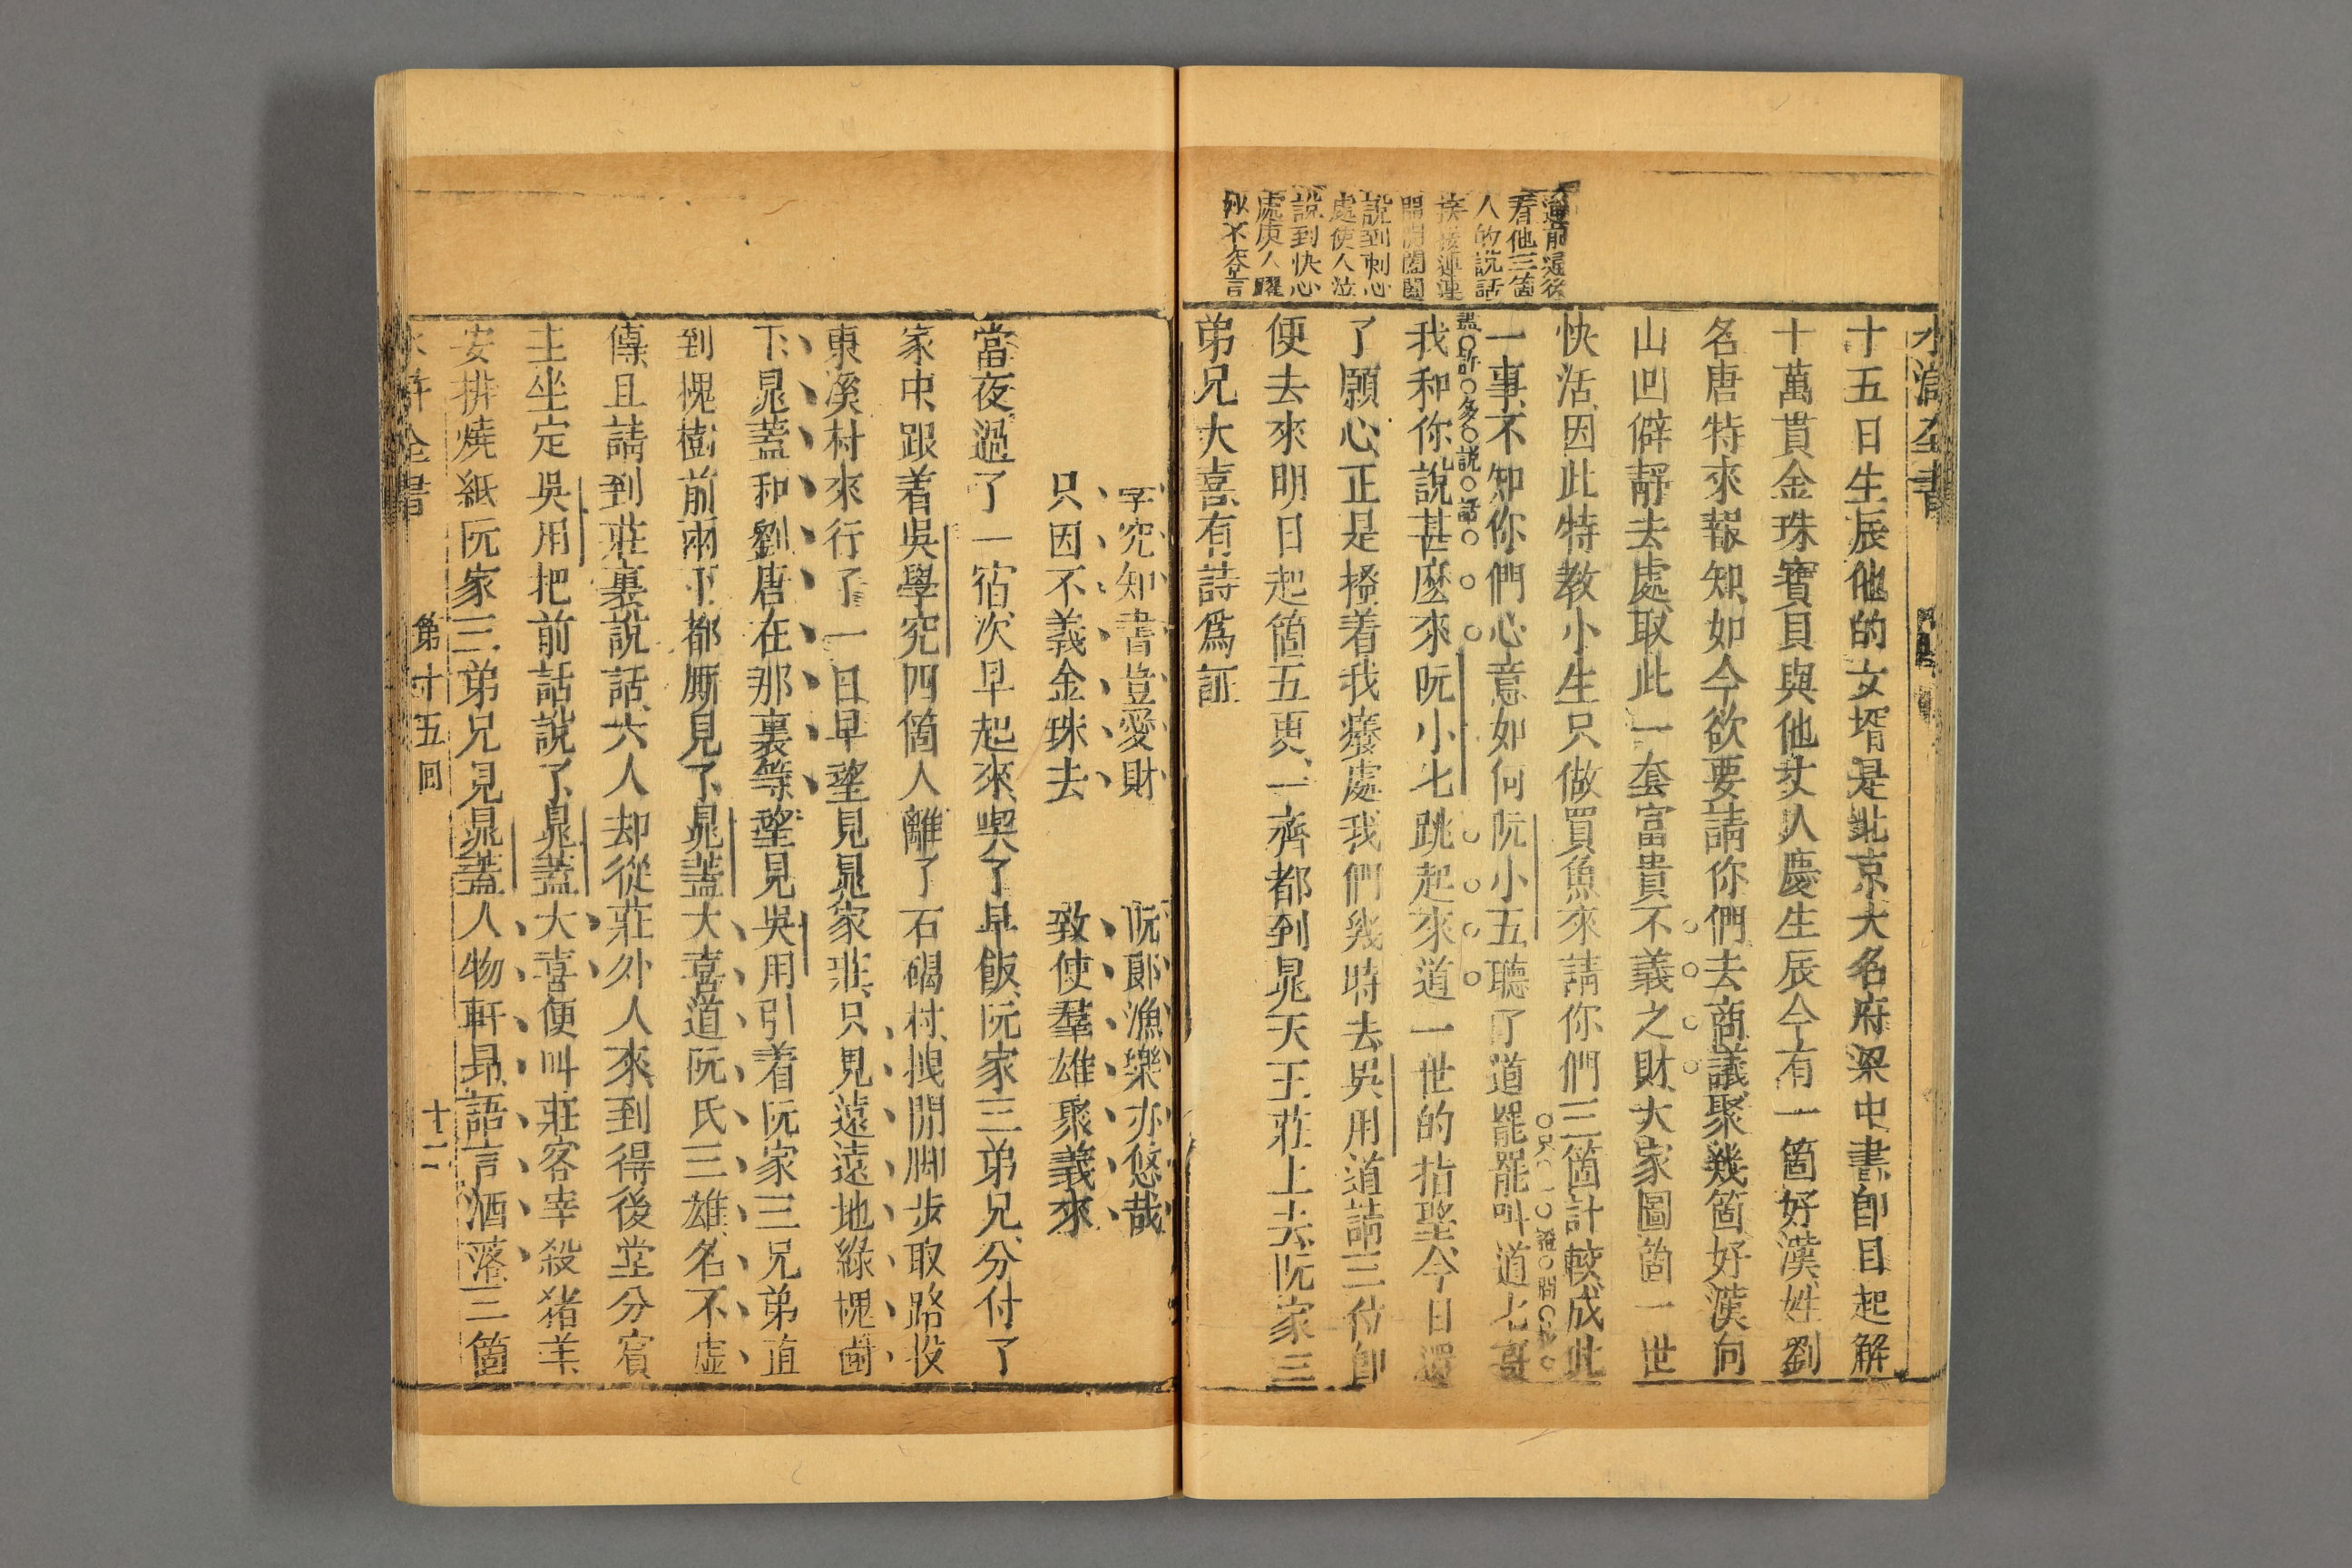 水滸全書
十五日生辰他的女壻是北京大名府梁中書卽目起解
十萬貫金珠寶貝與他丈人慶生辰今有一箇好漢姓劉
名唐特來報知如今欲要請你們去商議聚幾箇好漢向
山凹僻靜去處取此一套富貴不義之財大家圖箇一世
快活因此特教小生只做買魚來請你們三箇計較成此
一事不知你們心意如何阮小五聽了道罷罷叫道七哥
我和你說甚麼來阮小七跳起來道一世的指望今日還
了願心正是搔着我癢處我們幾時去吳用道請三位卽
便去來明日起箇五更一齊都到晁天王莊上去阮家三
弟兄大喜有詩爲証
看他三箇
人的說話
挨接連連
開開闔闔
說到刺心
處使人泣
說到快心
處使人躍
妙不容言
許多說話
學究知書豈愛財　阮郞漁樂亦悠哉
只因不義金珠去　致使羣雄聚義來
當夜過了一宿次早起來喫了早飯阮家三弟兄分付了
家中跟着吳學究四箇人離了石碣村拽開脚步取路投
東溪村來行了一日早望見晁家莊只見遠遠地綠槐樹
下晁蓋和劉唐在那裏等望見吳用引着阮家三兄弟直
到槐樹前兩下都厮見了晁蓋大喜道阮氏三雄名不虛
傳且請到莊裏說話六人却從莊外人來到得後堂分賓
主坐定吳用把前話說了晁蓋大喜便叫莊客宰殺猪羊
安排燒紙阮家三弟兄見晁蓋人物軒昻語言洒落三箇
水滸全書　第十五回　十二